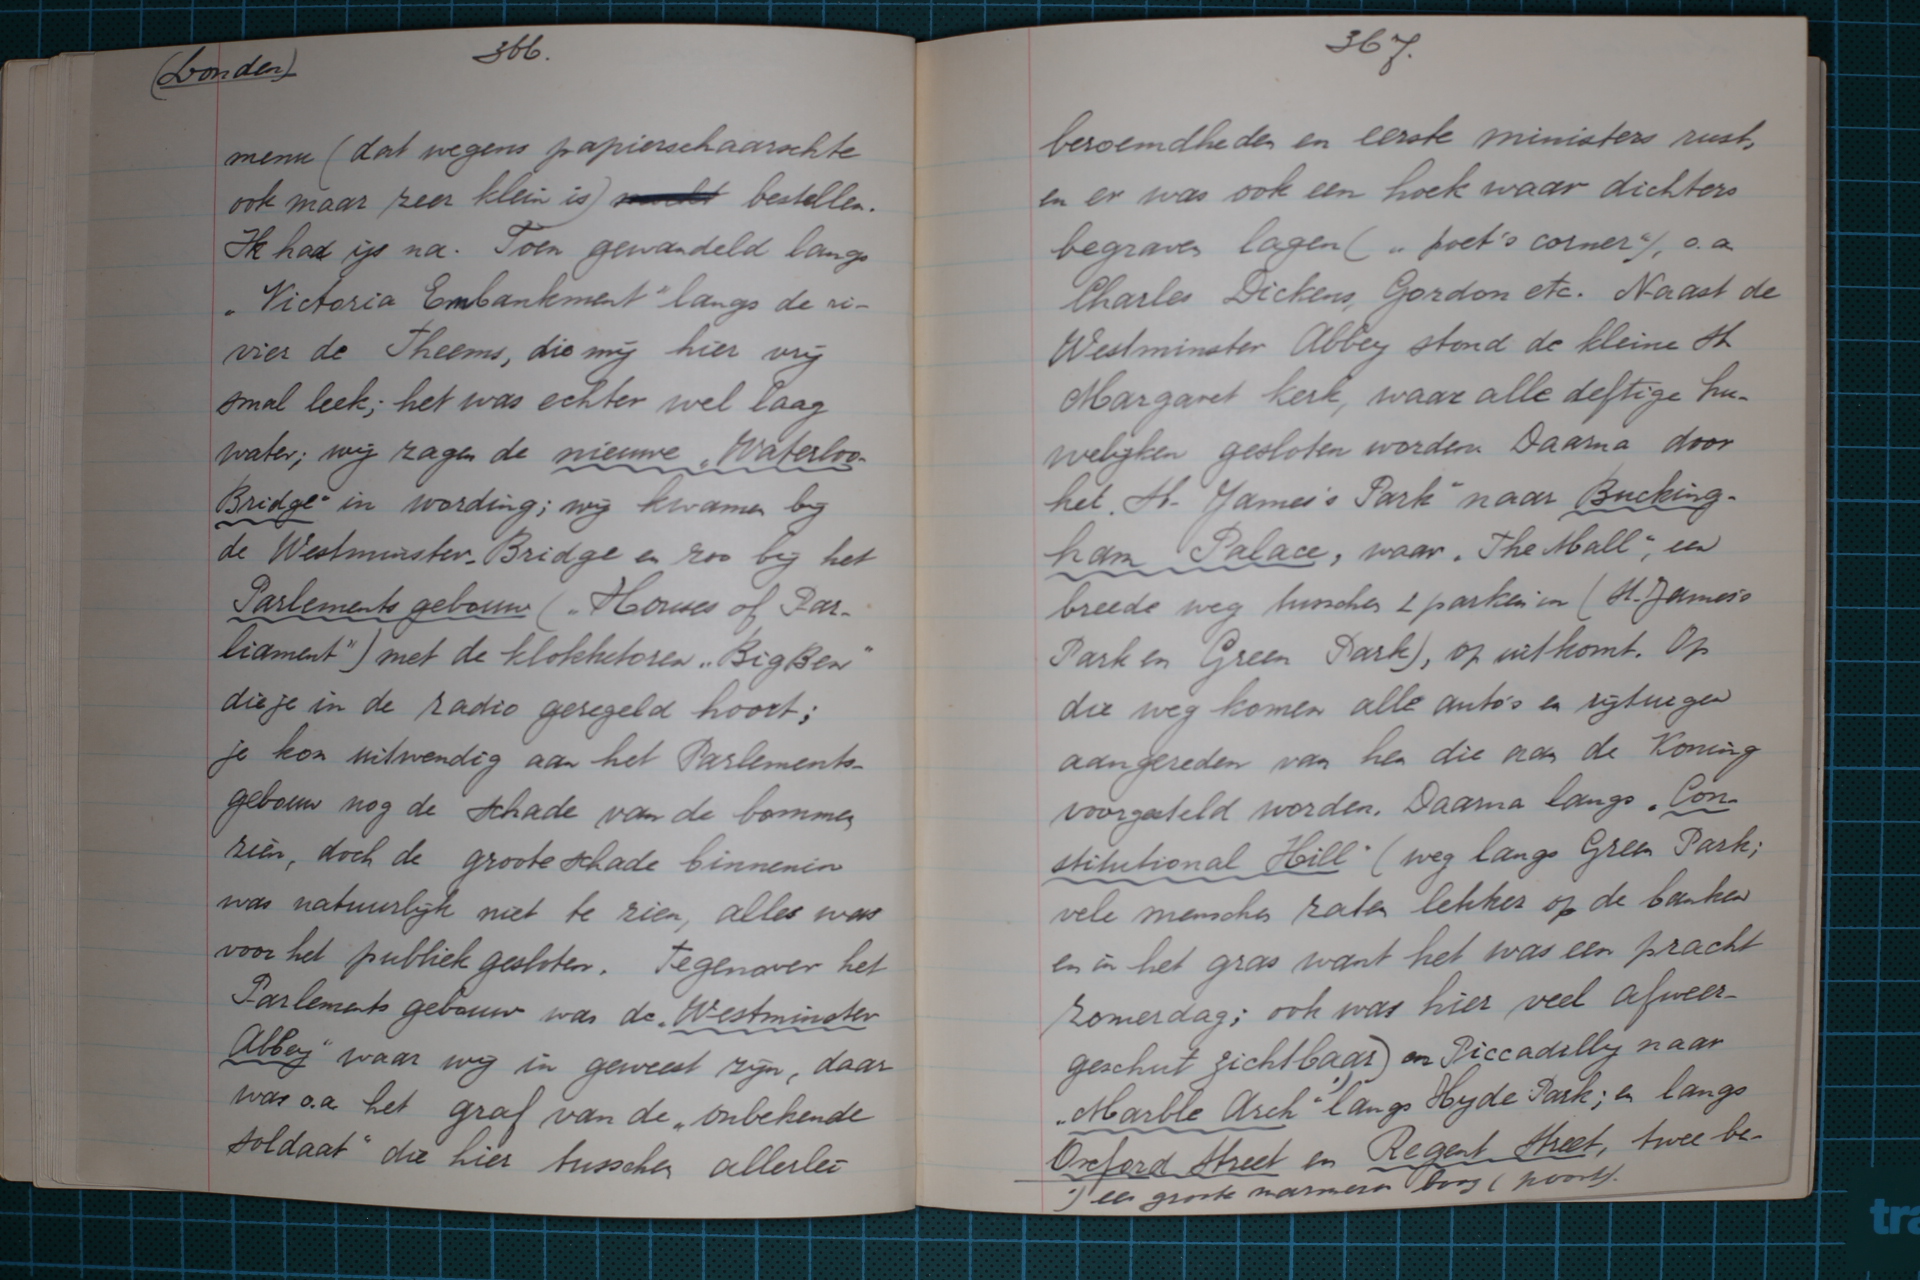 (Londen)
366.
menu (dat wegens papierschaarschte
ook maar zeer klein is) bestellen.
Ik had ijs na. Toen gewandeld langs
„Victoria Embankment" langs de ri-
vier de Theems, die mij hier vrij
smal leek; het was echter wel laag
water; wij zagen de nieuwe „Waterloo-
Bridge" in wording; wij kwamen bij
de Westminster-Bridge en zoo bij het
Parlementsgebouw („Houses of Par-
liament") met de klokketoren „Big Ben"
die je in de radio geregeld hoort;
je kon uitwendig aan het Parlements-
gebouw nog de schade van de bommen
zien, doch de groote schade binnenin
was natuurlijk niet te zien, alles was
voor het publiek gesloten. Tegenover het
Parlementsgebouw was de „Westminster
Abbey" waar wij in geweest zijn, daar
was o.a het graf van de „onbekende
soldaat" die hier tusschen allerlei
367.
beroemdheden en eerste ministers rust,
en er was ook een hoek waar dichters
begraven lagen („poet's corner"), o.a
Charles Dickens, Gordon etc. Naast de
Westminster Abbey stond de kleine St
Margaret kerk, waar alle deftige hu-
welijken gesloten worden. Daarna door
het „St. James's Park" naar Bucking-
ham Palace, waar „The Mall", een
breede weg tusschen 2 parken in (St. James's
Park en Green Park), op uitkomt. Op
die weg komen alle auto's en rijtuigen
aangereden van hen die aan de Koning
voorgesteld worden. Daarna langs „Con-
stitutional Hill" (weg langs Green Park;
vele menschen zaten lekker op de banken
en in het gras want het was een pracht
zomerdag; ook was hier veel afweer-
geschut zichtbaar) en Piccadilly naar
„Marble Arch"¹) langs Hyde Park; en langs
Oxford Street en Regent Street, twee be-
¹) een groote marmeren boog (poort).